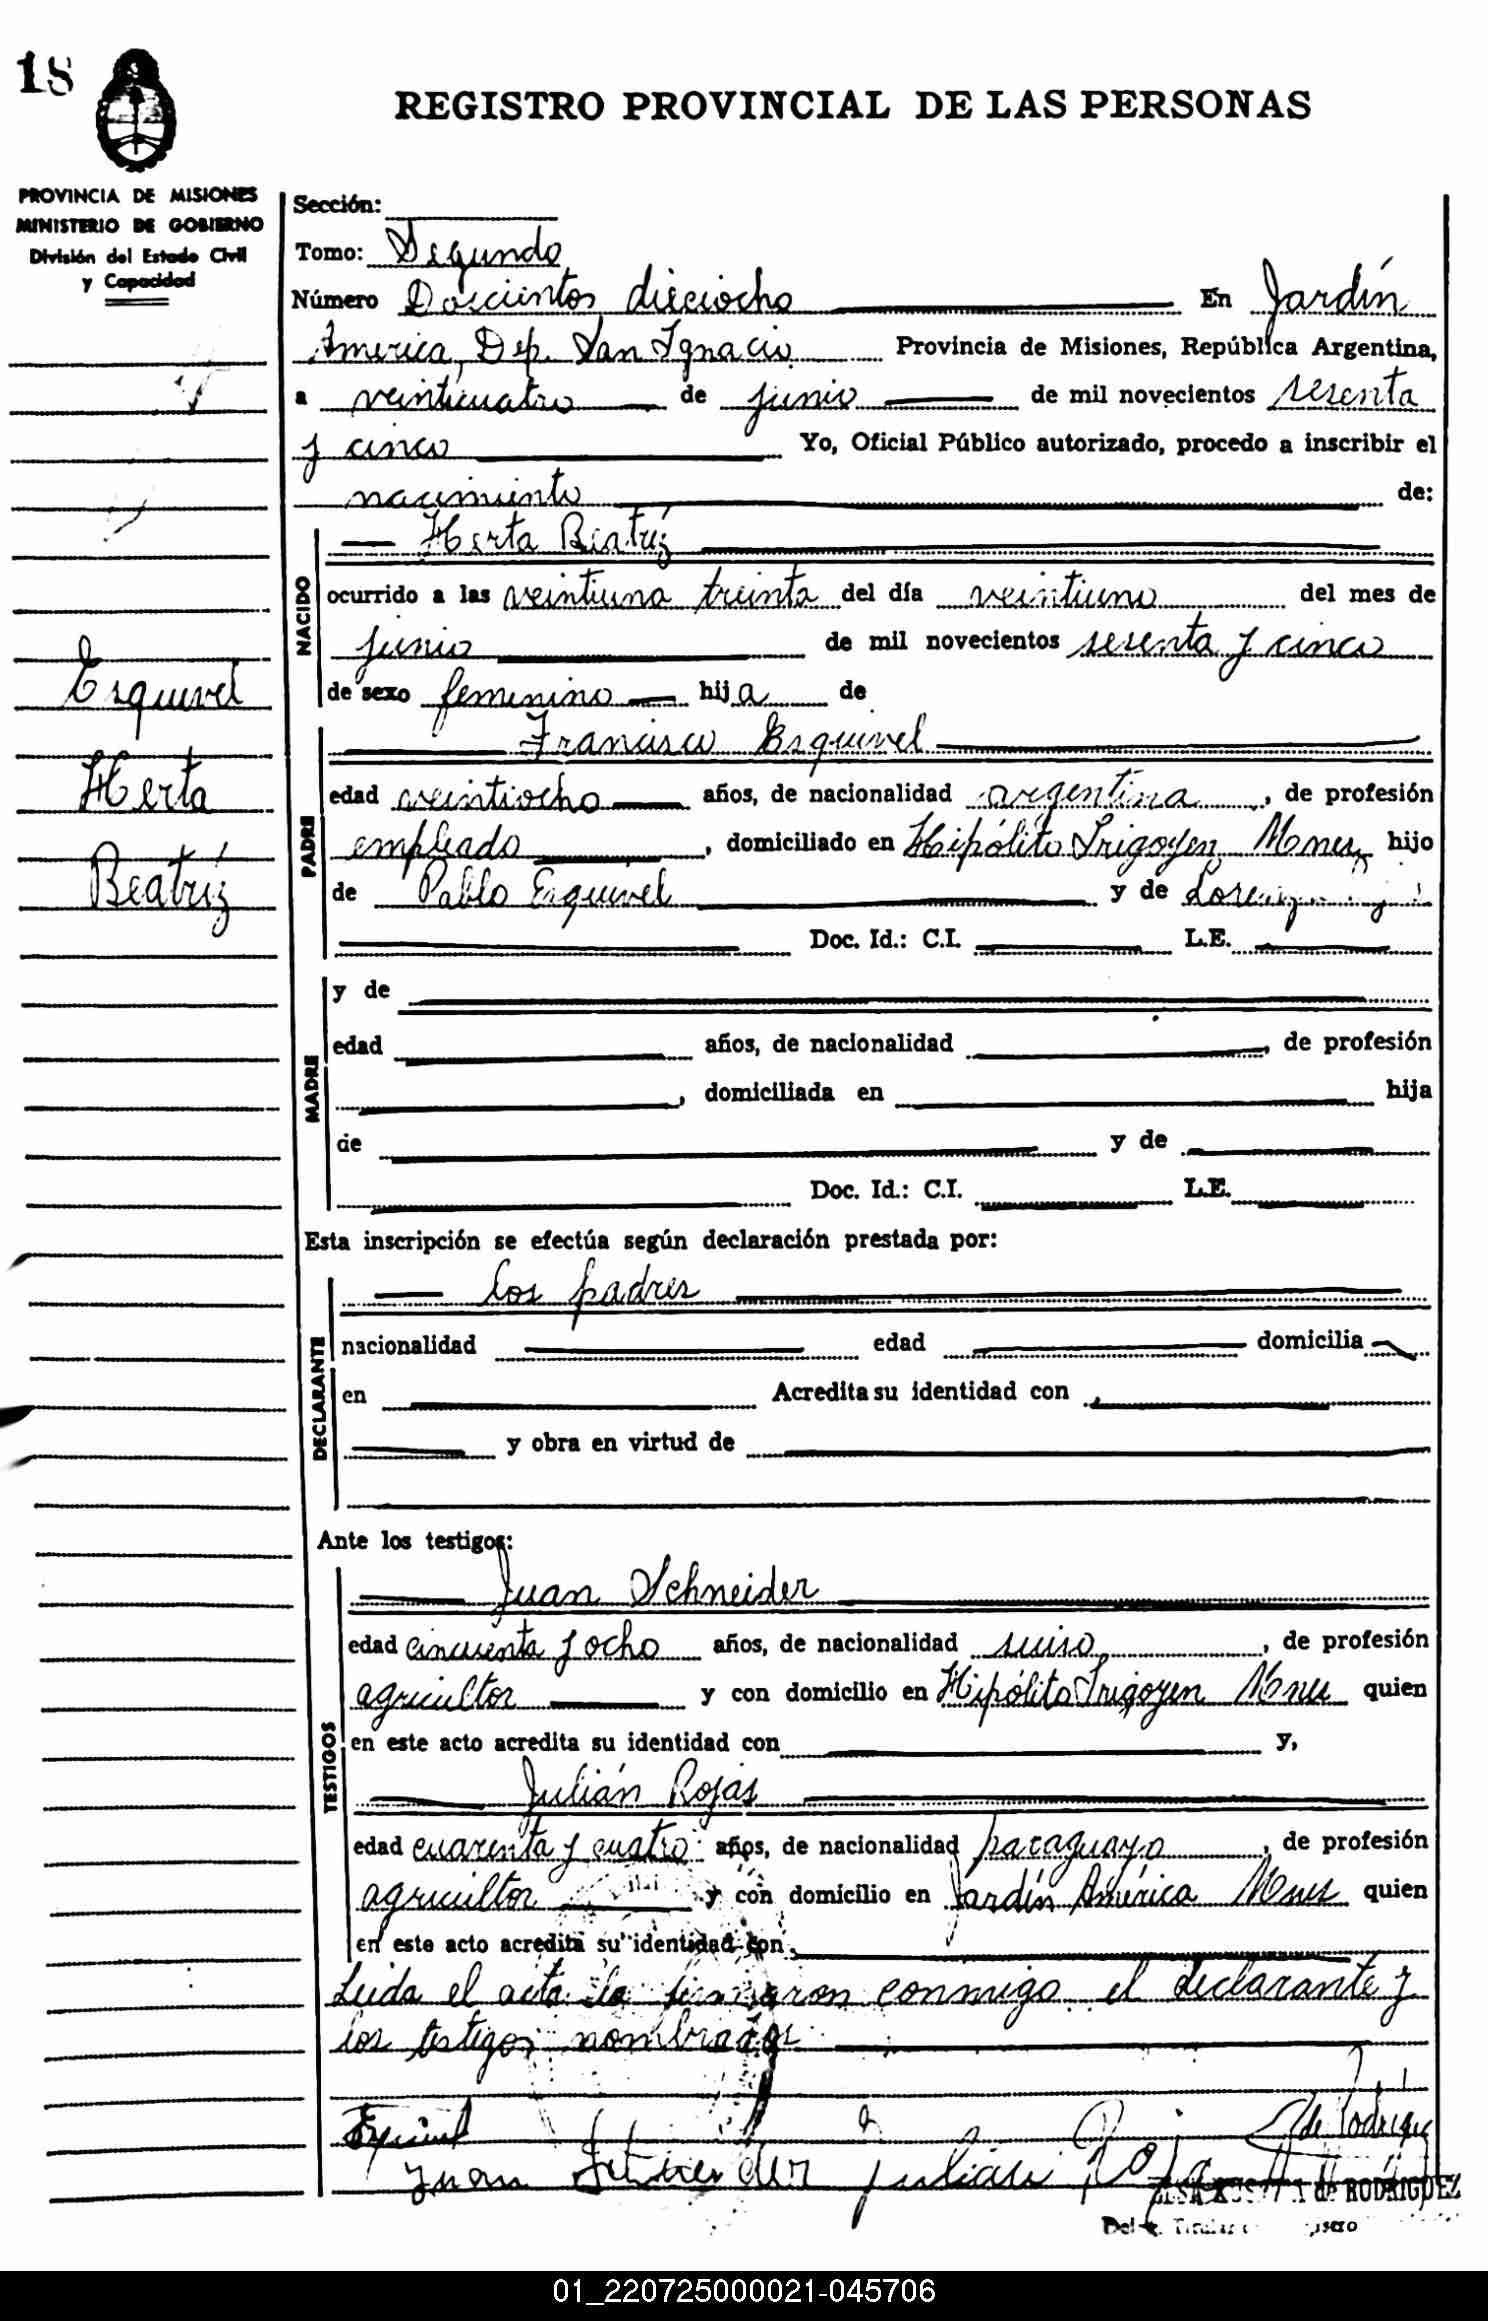 18
REGISTRO PROVINCIAL DE LAS PERSONAS
PROVINCIA DE MISIONES
MINISTERIO DE GOBIERNO
División del Estado Civil
y Capacidad
Sección:
Tomo: Segundo
Número Doscientos dieciocho En Jardín
America, Dep. San Ignacio Provincia de Misiones, República Argentina,
a veinticuatro de junio de mil novecientos sesenta
y cinco Yo, Oficial Público autorizado, procedo a inscribir el
nacimiento de:
Herta Beatríz
NACIDO
ocurrido a las veintiuna treinta del día veintiuno del mes de
junio de mil novecientos sesenta y cinco
de sexo femenino hija de
Esquivel
Herta
Beatríz
Francisco Esquivel
PADRE
edad veintiocho años, de nacionalidad argentina, de profesión
empleado, domiciliado en Hipólito Irigoyen Mnes, hijo
de Pablo Esquivel y de
Doc. Id.: C.I. L.E.
MADRE
y de
edad años, de nacionalidad , de profesión
, domiciliada en hija
de y de
Doc. Id.: C.I. L.E.
Esta inscripción se efectúa según declaración prestada por:
DECLARANTE
los padres
nacionalidad edad domicilia
en Acredita su identidad con
y obra en virtud de
Ante los testigos:
TESTIGOS
Juan Schneider
edad cincuenta y ocho años, de nacionalidad suiso, de profesión
agricultor y con domicilio en Hipólito Irigoyen Mnes quien
en este acto acredita su identidad con y,
Julián Rojas
edad cuarenta y cuatro años, de nacionalidad paraguayo, de profesión
agricultor y con domicilio en Jardín América Mnes quien
en este acto acredita su identidad con
Leida el acta la firmaron conmigo el declarante y
los testigos nombrados
Esquivel
Juan Schneider Julian Rojas de Rodriguez
de RODRIGUEZ
01_220725000021-045706